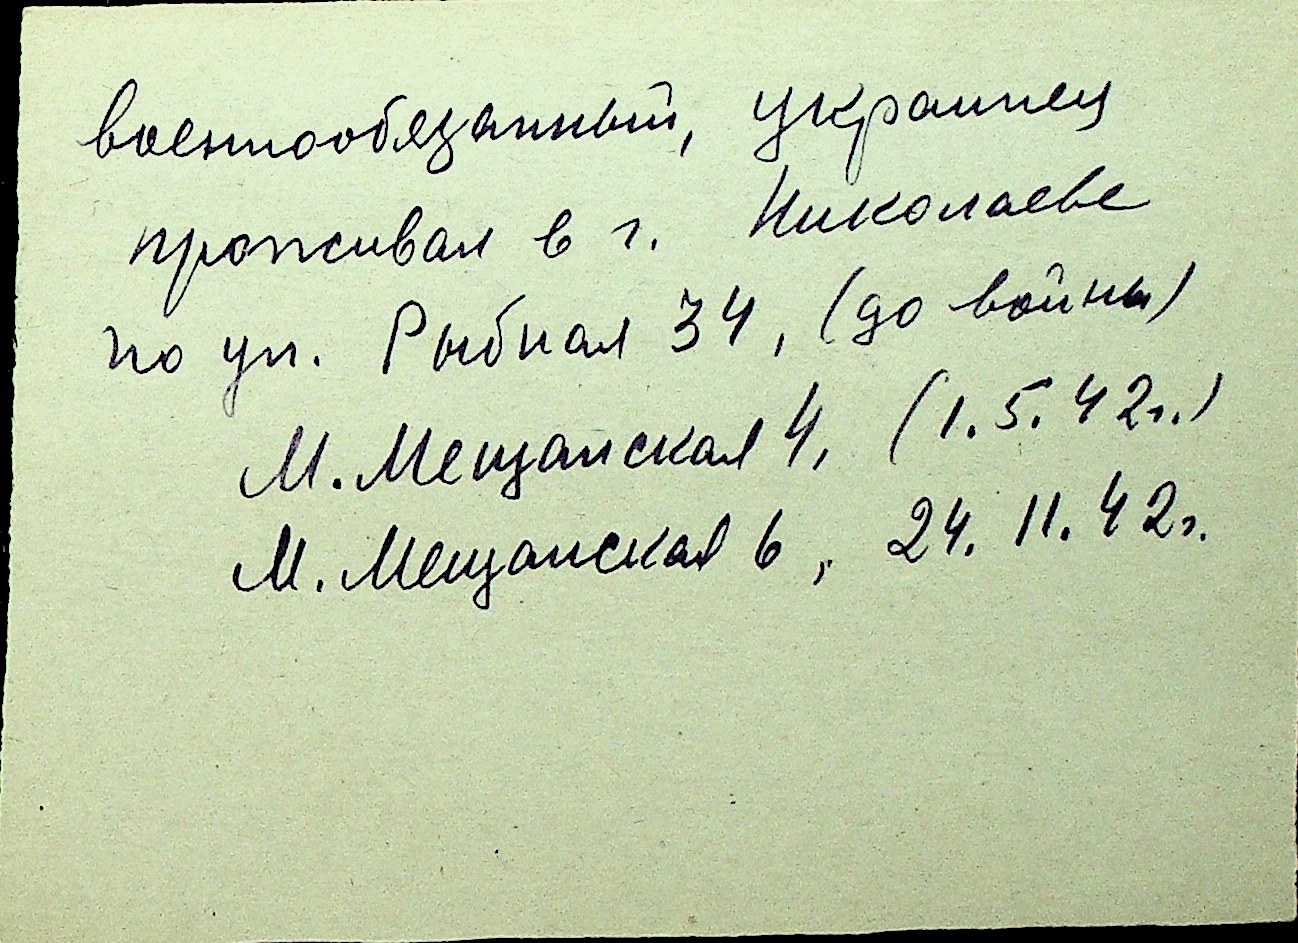 военнообязанный, украинец
проживал в г. Николаеве
по ул. Рыбная 34, (до войны)
М. Мещанская 4, (1.5.42г.)
М. Мещанская 6, 24.11.42г.